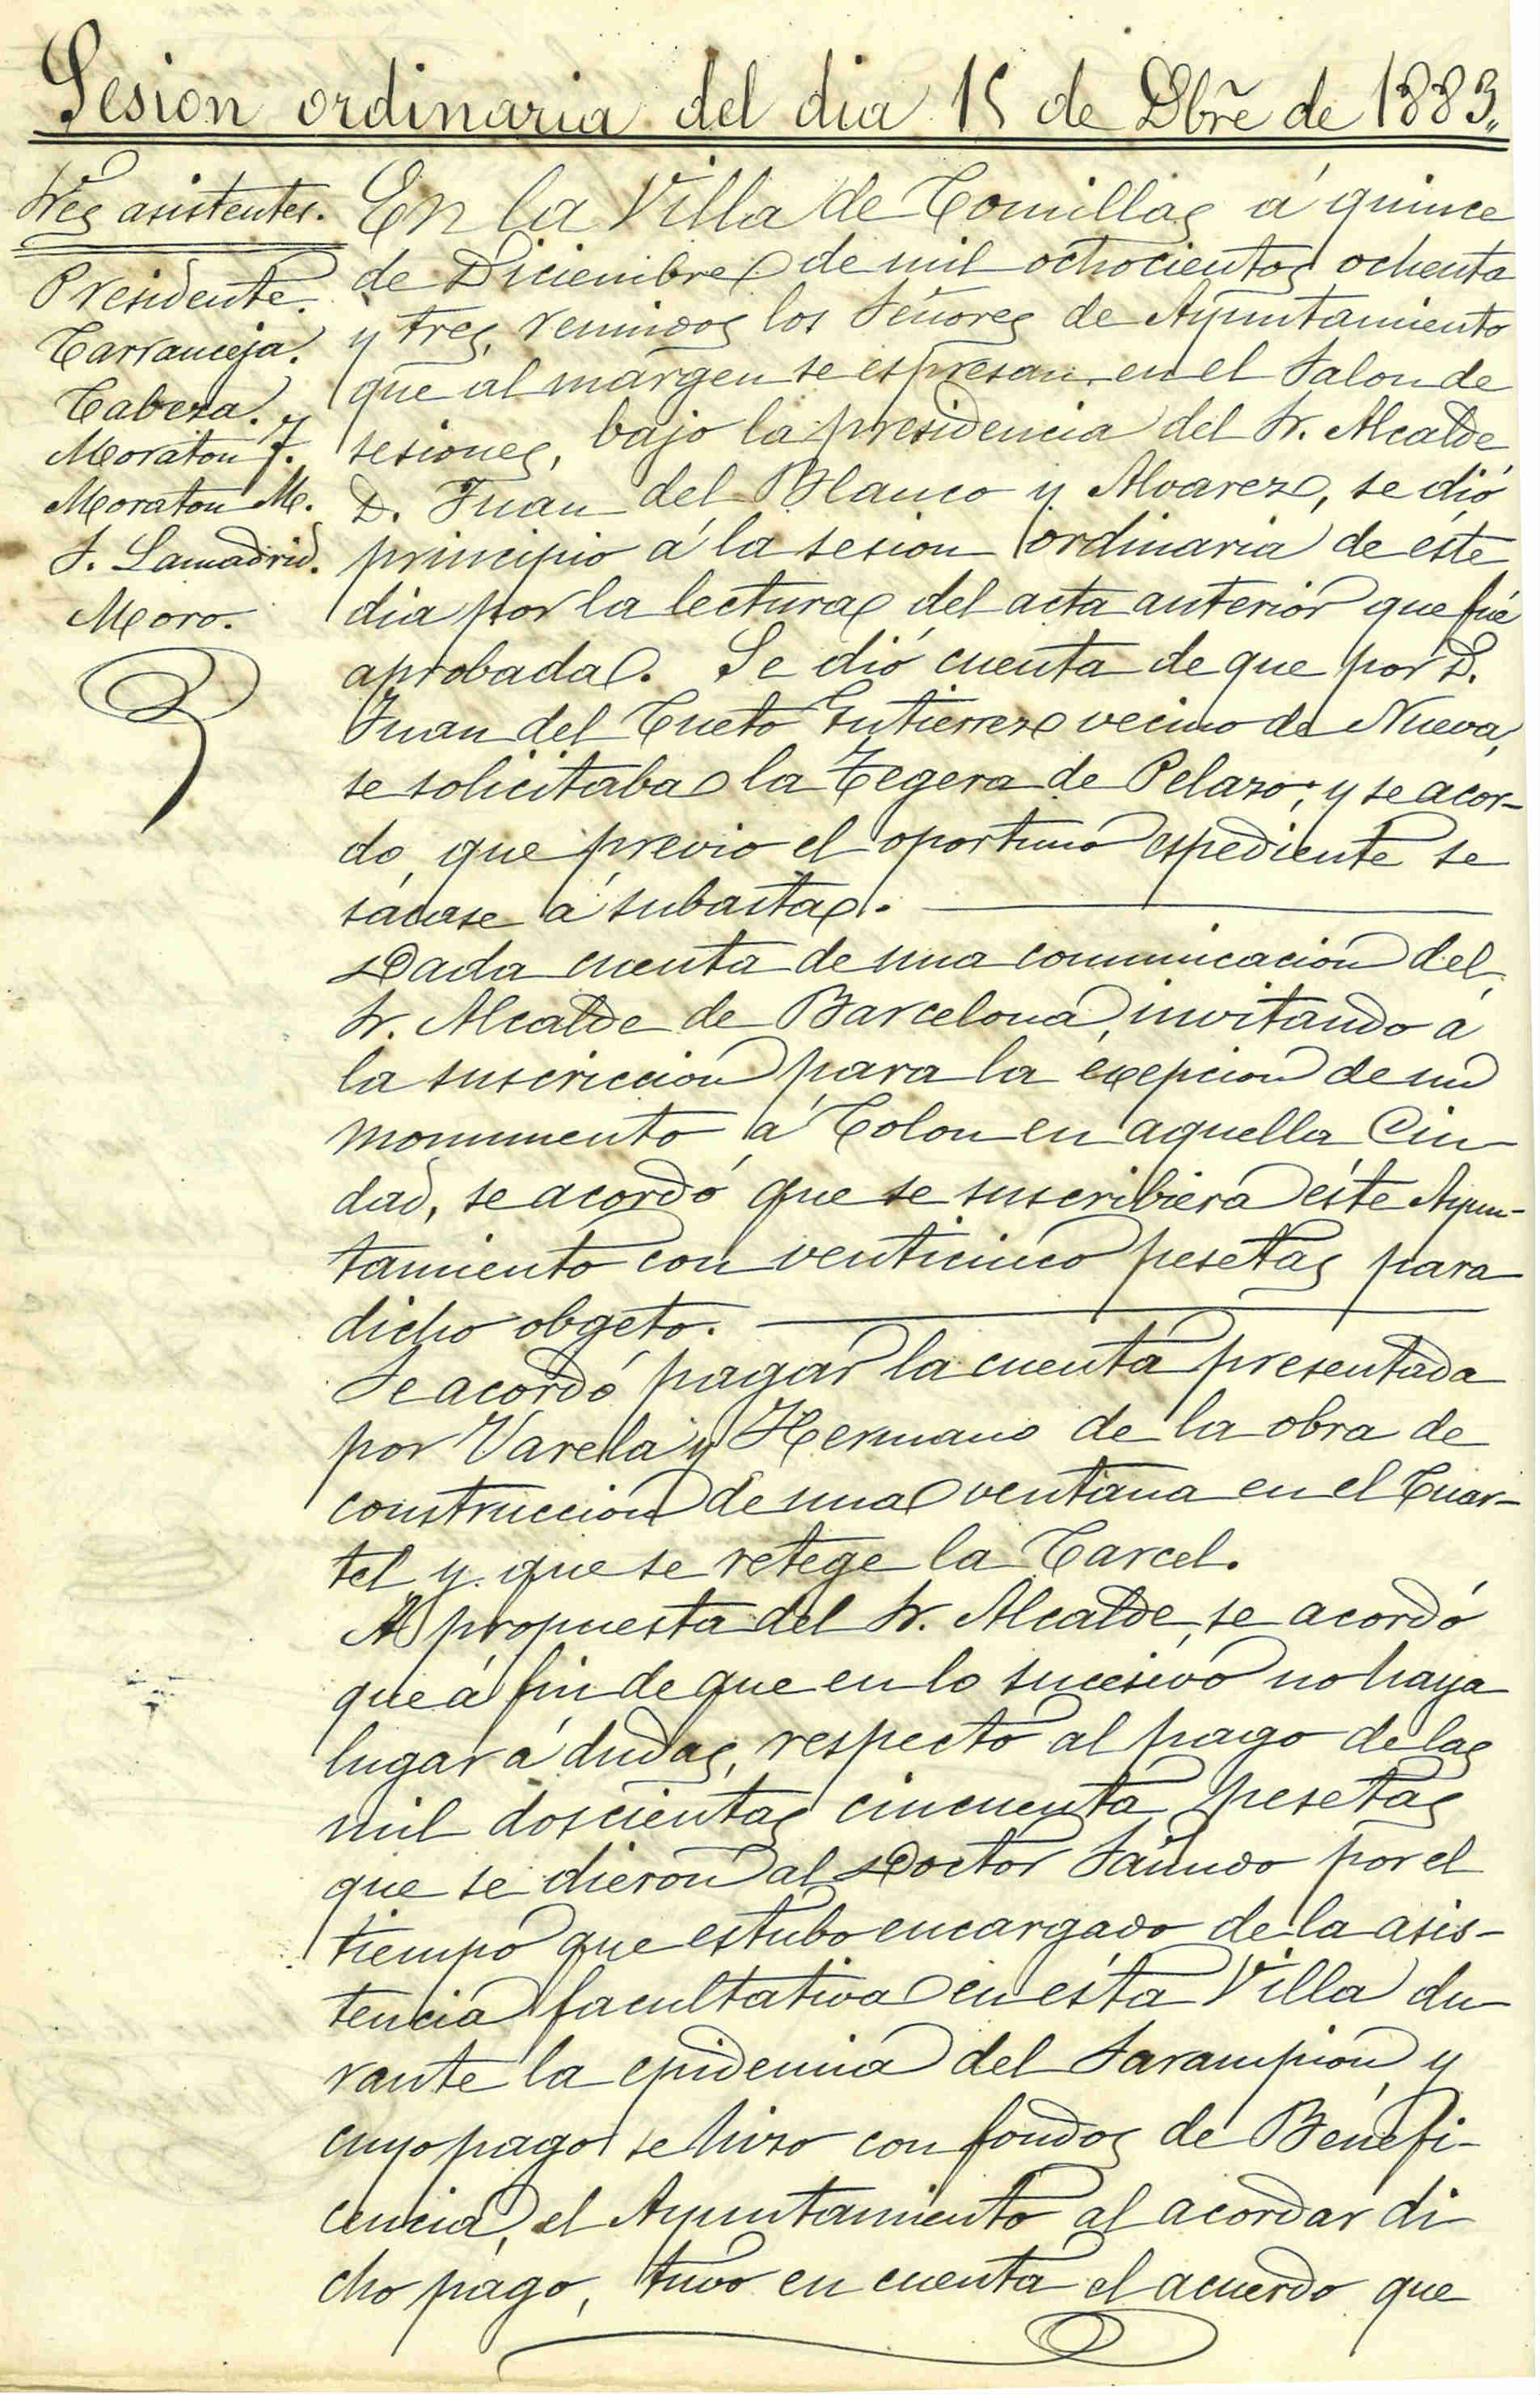 Sesion ordinaria del dia 15 de Dbre de 1883.,
Sres asistentes.
Presidente.
Carranceja.
Cabeza.
Moraton J.
Moraton M.
S. Lamadrid.
Moro.
En la Villa de Comillas á quince
de Diciembre de mil ochocientos ochenta
y tres, reunidos los Señores de Ayuntamiento
que al margen se espresan en el Salon de
sesiones, bajo la presidencia del Sr. Alcalde
D. Juan del Blanco y Alvarez, se dió
principio á la sesion ordinaria de éste
dia por la lectura del acta anterior que fué
aprobada. Se dió cuenta de que por D.
Juan del Cueto Gutierrez vecino de Nueva,
se solicitaba la Tegera de Pelazo; y se acor-
do, que previo el oportuno espediente se
sácase á subasta.
Dada cuenta de una comunicacion del
Sr. Alcalde de Barcelona, invitando á
la suscriccion para la exepcion de un
monumento á Colon en aquella Ciu-
dad, se acordó que se suscribiera éste Ayun-
tamiento con venticinco pesetas para
dicho obgeto.
Se acordó pagar la cuenta presentada
por Varela y Hermano de la obra de
construccion de una ventana en el Cuar-
tel y que se retege la Carcel.
A propuesta del Sr. Alcalde, se acordó
que á fin de que en lo sucesivo no haya
lugar á dudas, respecto al pago de las
mil doscientas cincuenta pesetas
que se dieron al Doctor por el
tiempo que estubo encargado de la asis-
tencia facultativa en ésta Villa du-
rante la epidemia del Sarampion, y
cuyo pago se hizo con fondos de Benefi-
cencia, el Ayuntamiento al acordar di
cho pago, tuvo en cuenta el acuerdo que